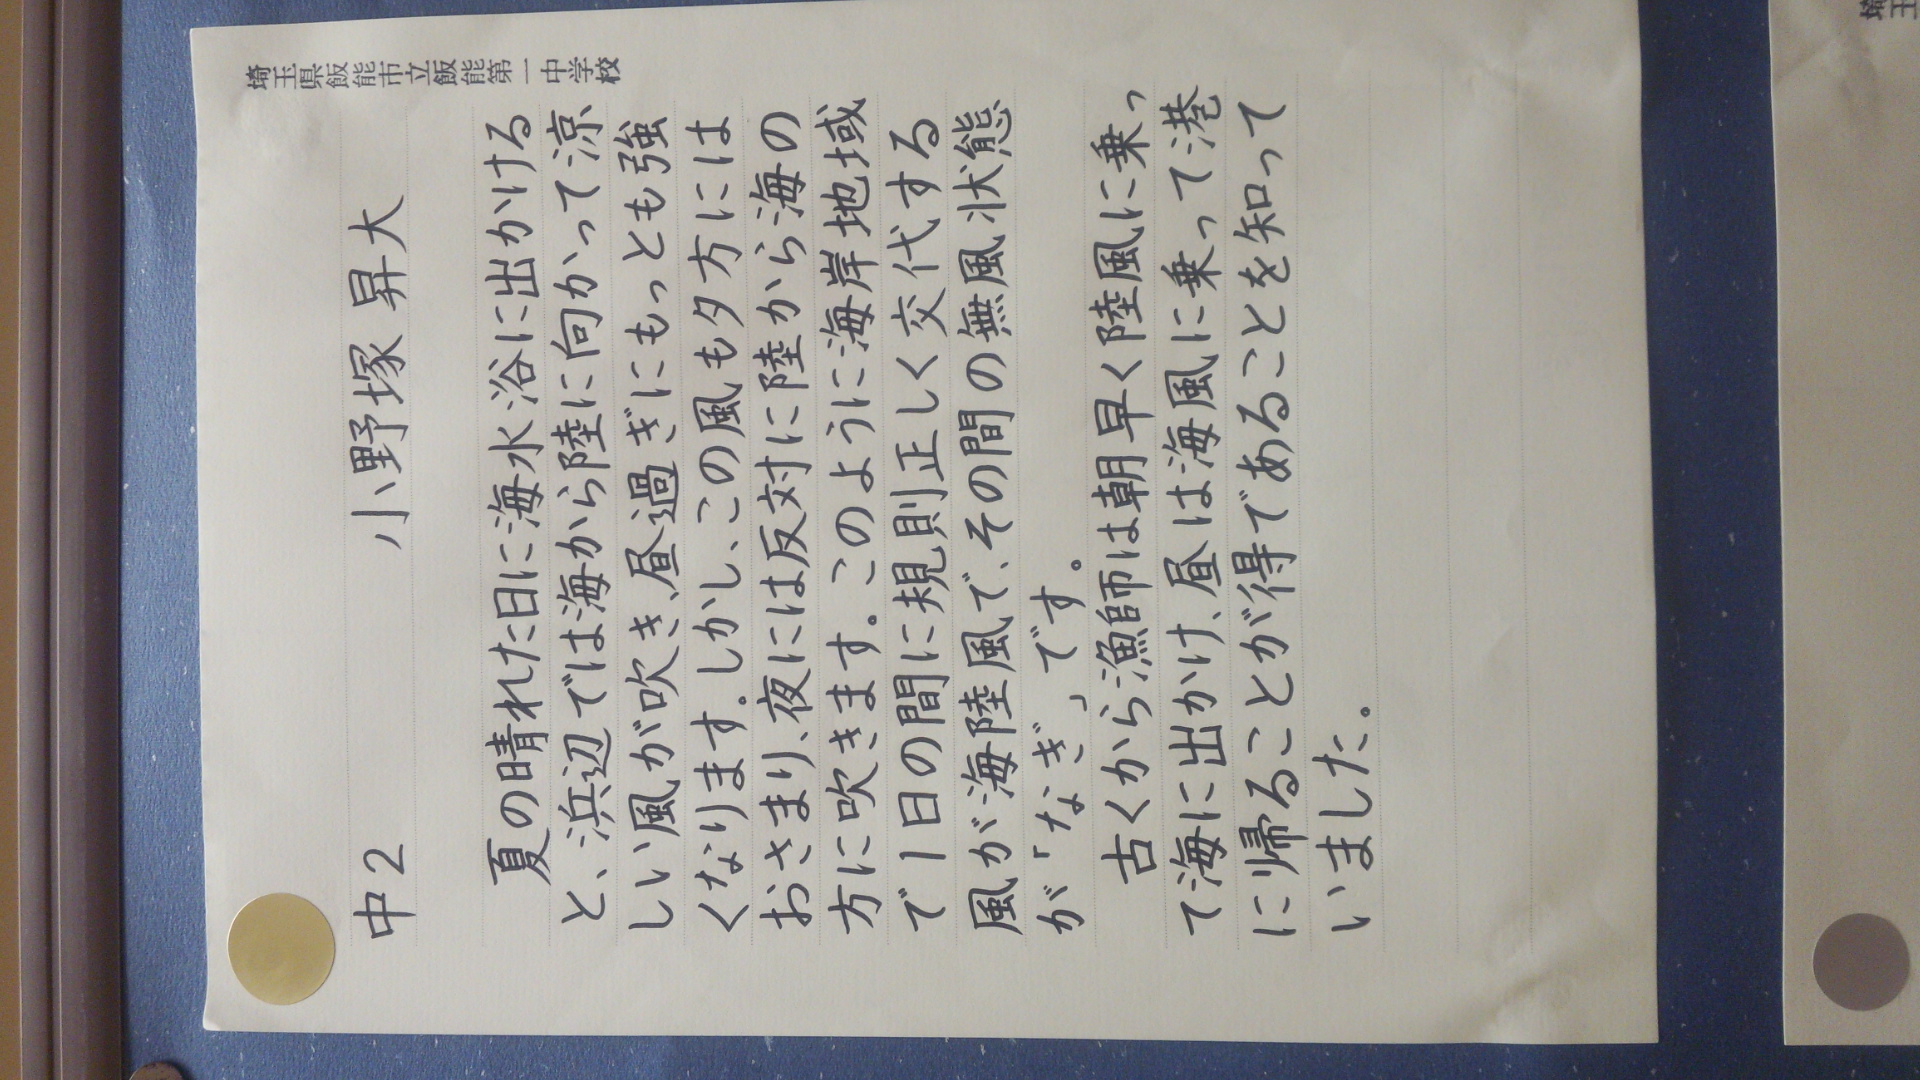 埼玉県飯能市立飯能第一中学校
中2 小野塚 昇大
夏の晴れた日に海水浴に出かける
と、浜辺では海から陸に向かって涼
しい風が吹き、昼過ぎにもっとも強
くなります。しかし、この風も夕方には
おさまり、夜には反対に陸から海の
方に吹きます。このように海岸地域
で1日の間に規則正しく交代する
風が海陸風で、その間の無風状態
が「なぎ」です。
古くから漁師は朝早く陸風に乗っ
て海に出かけ、昼は海風に乗って港
に帰ることが得であることを知って
いました。
埼